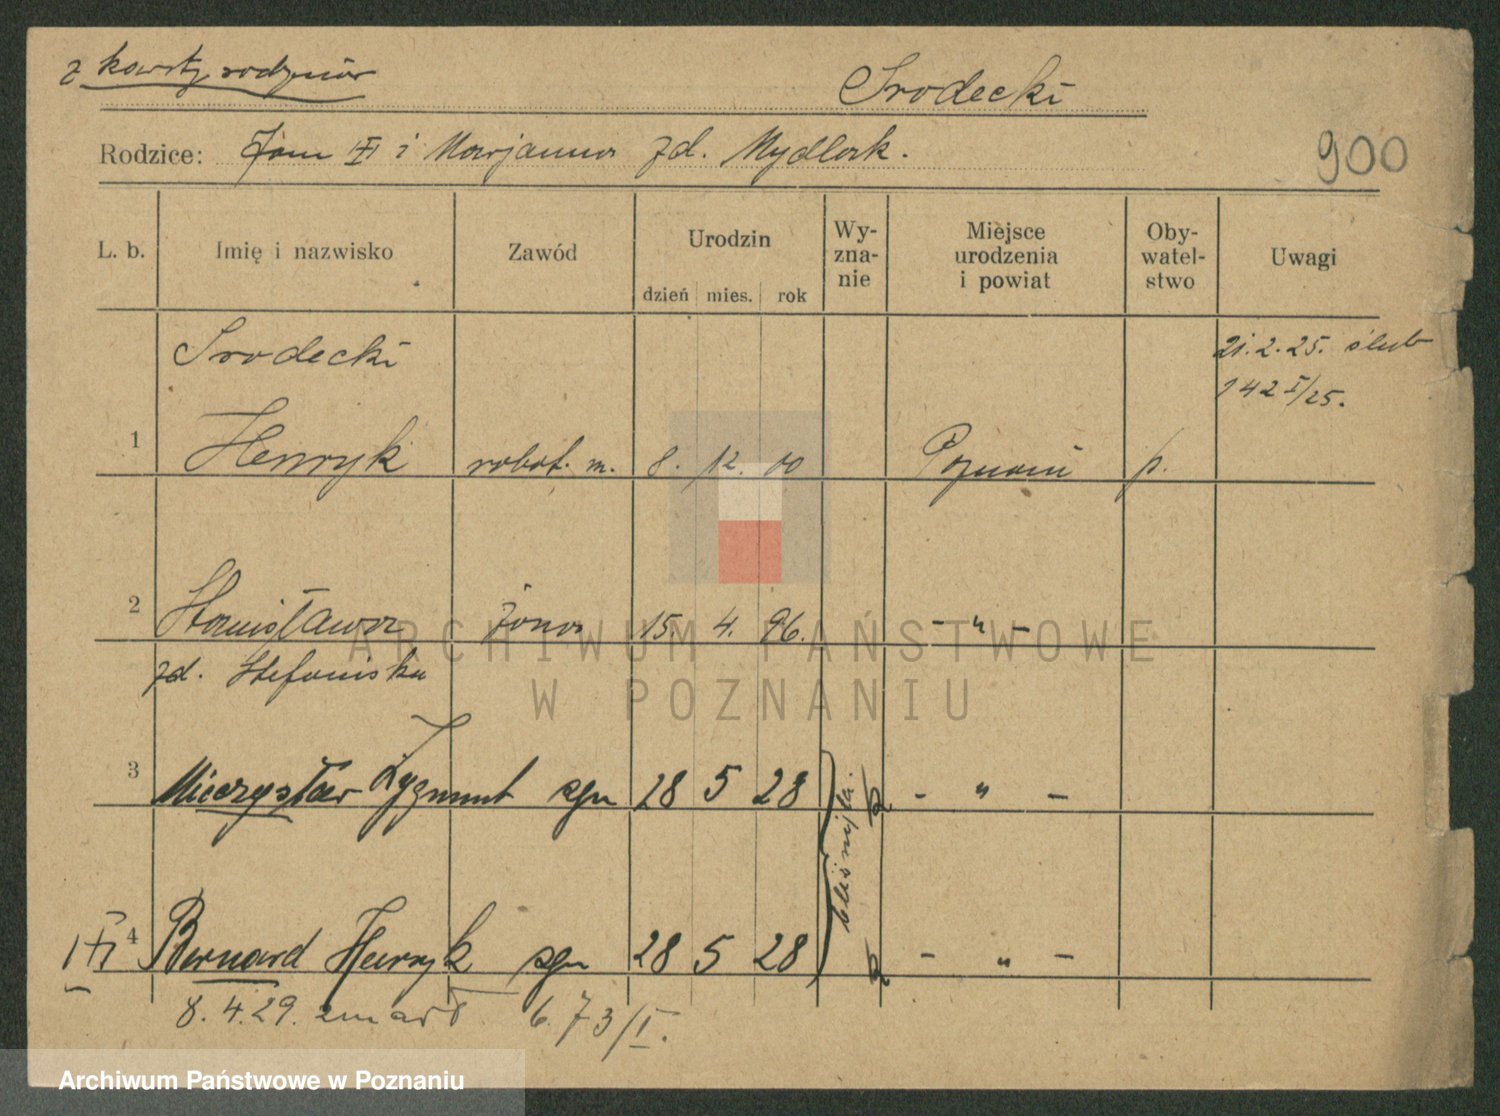 z karty rodzinów
Srodecki
Rodzice: Jan i Marjanna zd. Mydlak.
900
L. b. Imię i nazwisko Zawód Urodzin dzień mies. rok Wy-zna-nie Miejsce urodzenia i powiat Oby-watel-stwo Uwagi
Srodecki 21.2.25. ślub
142 I/25.
1 Henryk robot. m. 8. 12. 00 Poznań p.
2 Stanisława żona 15. 4. 96. - " -
zd. Stefańska
ARCHIWUM PAŃSTWOWE
W POZNANIU
3 Mieczysław Zygmunt syn 28 5 28 - " -
4 Bernard Henryk syn 28 5 28 - " -
8.4.29. zmarł 6.73/I.
Archiwum Państwowe w Poznaniu